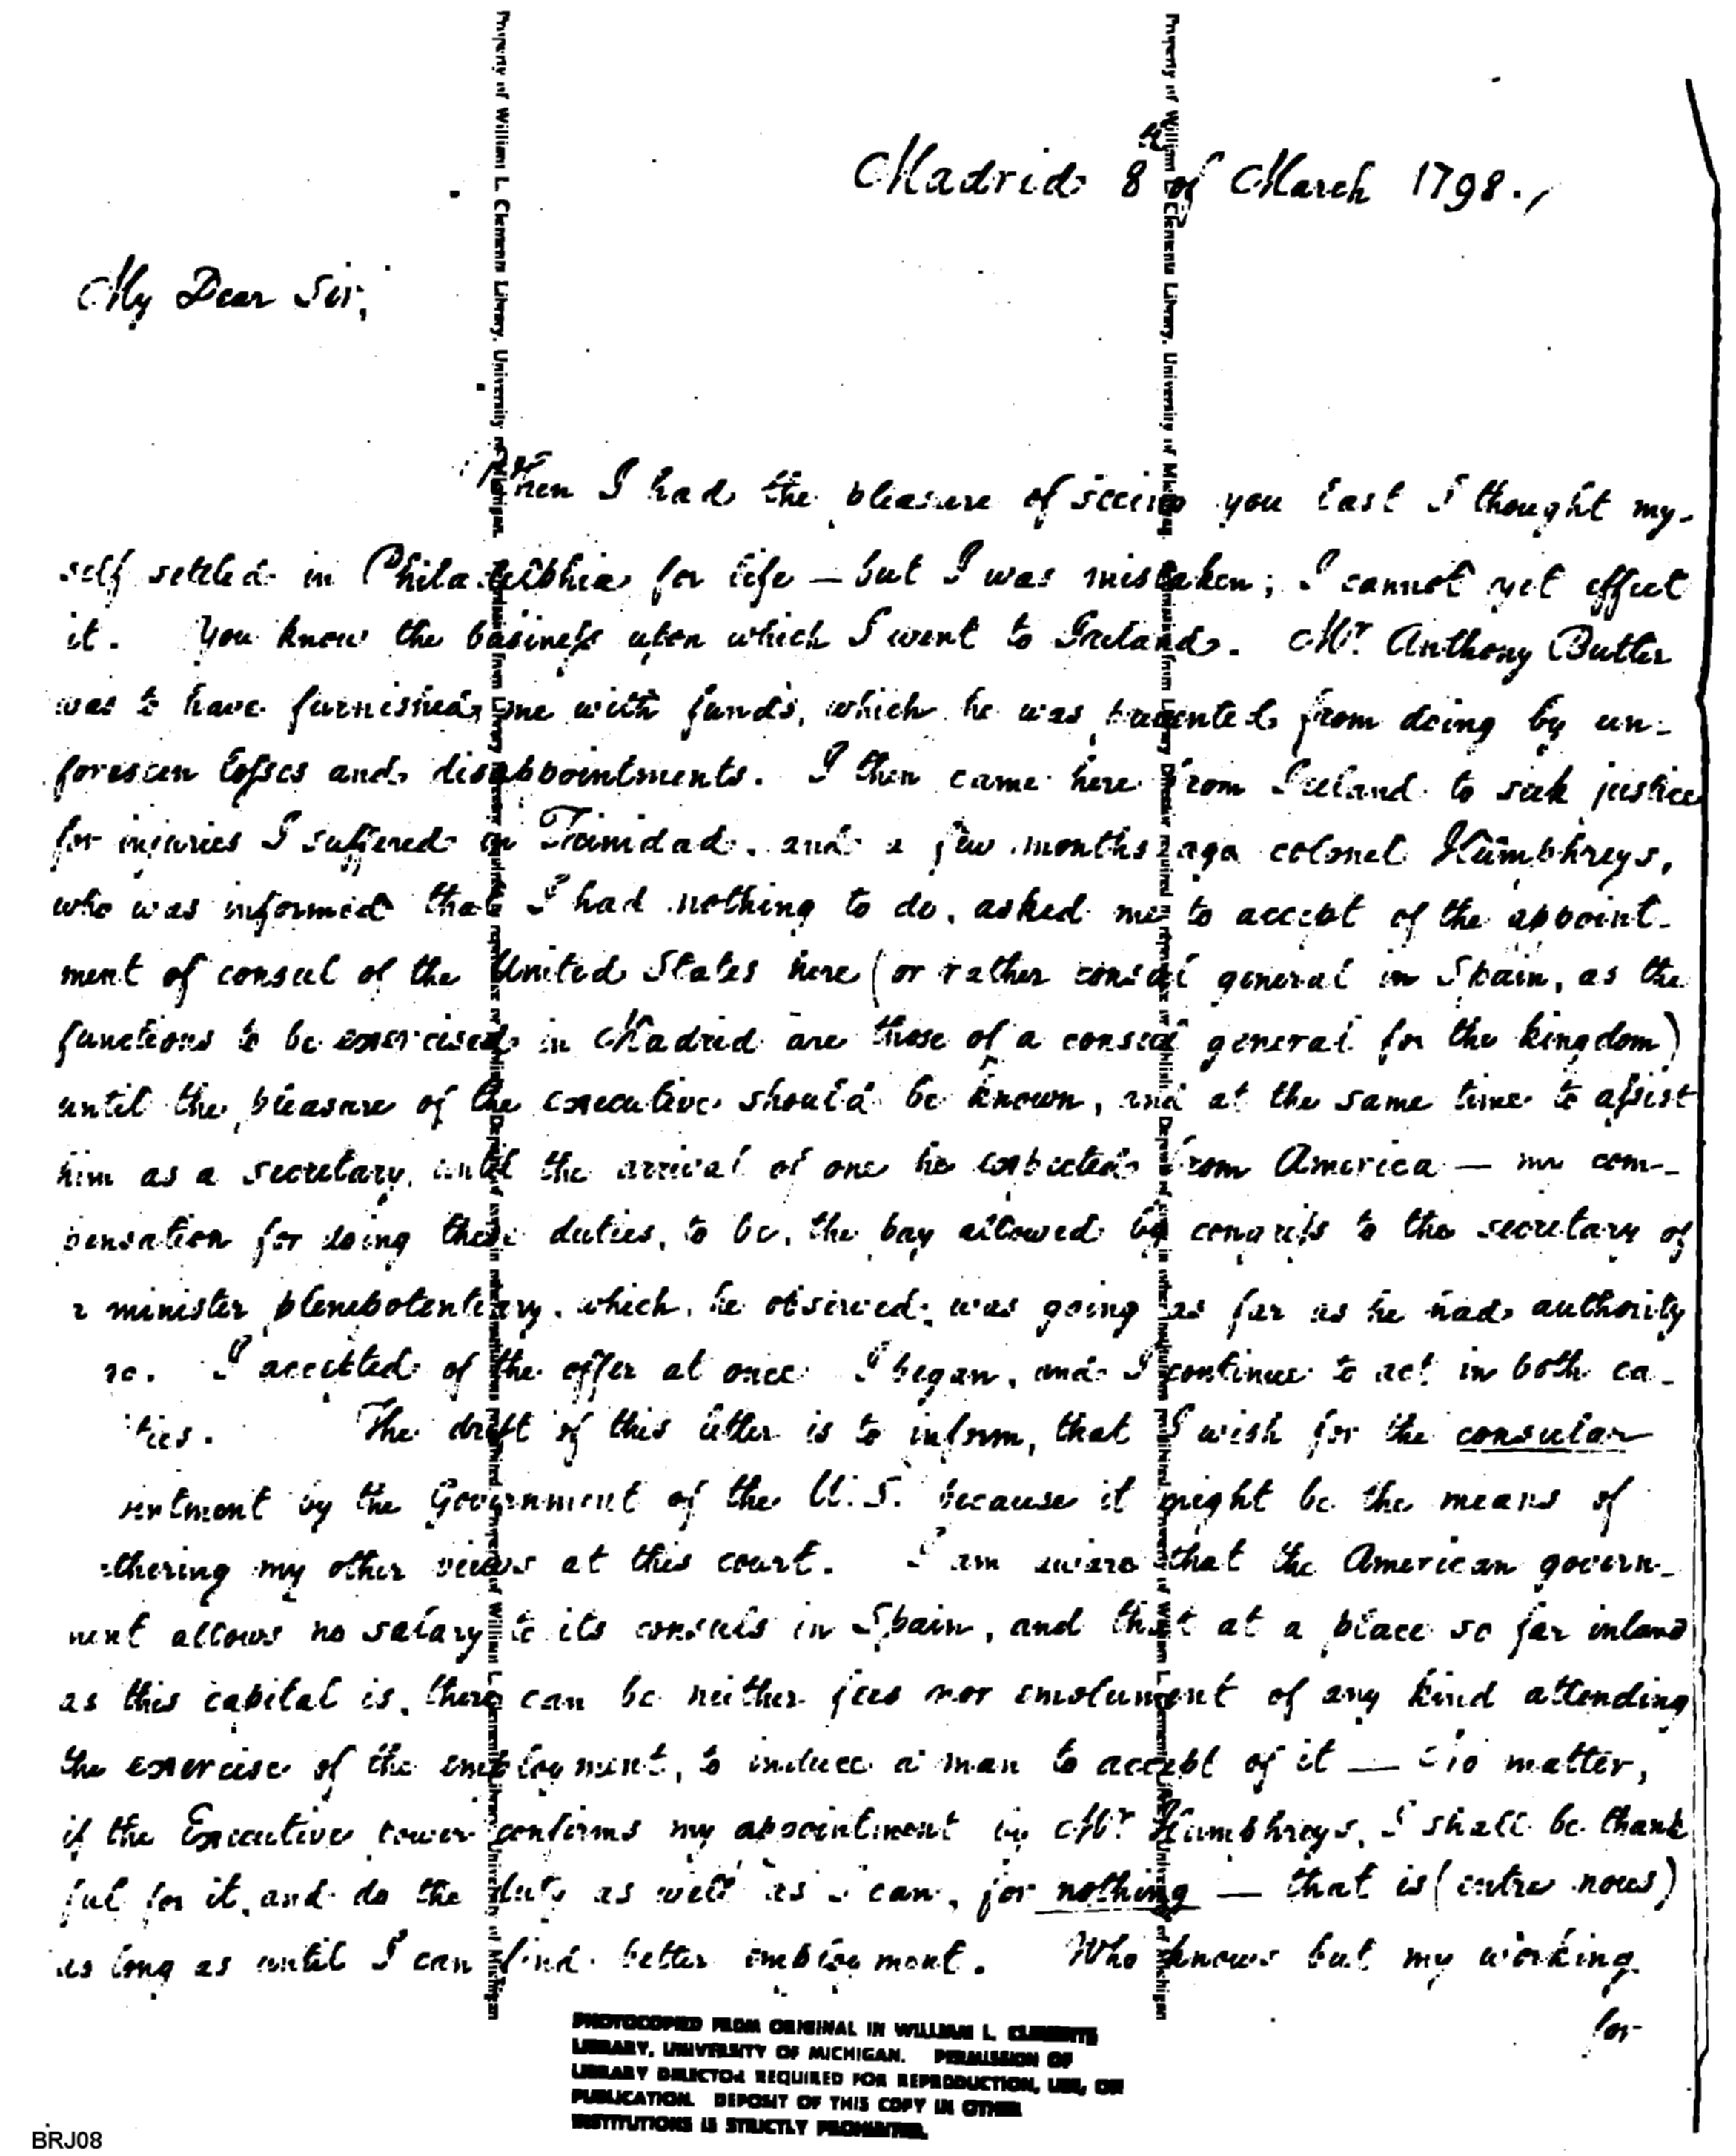 Madrid 8th of March 1798.
My Dear Sir,
When I had the pleasure of seeing you last I thought my-
self settled in Philadelphia for life — but I was mistaken; I cannot yet effect
it. You know the business upon which I went to Ireland. Mr. Anthony Butler
was to have furnished me with funds, which he was prevented from doing by un-
foreseen losses and disappointments. I then came here from Ireland to seek justice
for injuries I suffered in Trinidad, and a few months ago colonel Humphreys,
who was informed that I had nothing to do, asked me to accept of the appoint-
ment of consul of the United States here (or rather consul general in Spain, as the
functions to be exercised in Madrid are those of a consul general for the kingdom)
until the pleasure of the executive should be known, and at the same time to assist
him as a secretary, until the arrival of one he expected from America — my com-
pensation for doing these duties, to be, the pay allowed by congress to the secretary of
a minister plenipotentiary, which, he observed, was going as far as he had authority
I accepted of the offer at once. I began, and I continue to act in both ca-
ties. The drift of this letter is to inform, that I wish for the consular
intment by the Government of the U.S. because it might be the means of
thering my other views at this court. I am aware that the American govern-
ment allows no salary to its consuls in Spain, and that at a place so far inland
as this capital is, there can be neither fees nor emolument of any kind attending
the exercise of the employment, to induce a man to accept of it — No matter,
if the Executive power confirms my appointment by Mr. Humphreys, I shall be thank
ful for it, and do the duty as well as I can, for nothing — that is (entre nous)
as long as until I can find better employment. Who knows but my working
for
PHOTOCOPIED FROM ORIGINAL IN WILLIAM L. CLEMENTS
LIBRARY, UNIVERSITY OF MICHIGAN. PERMISSION OF
LIBRARY DIRECTOR REQUIRED FOR REPRODUCTION, USE, OR
PUBLICATION. DEPOSIT OF THIS COPY IN OTHER
INSTITUTIONS IS STRICTLY PROHIBITED.
BRJ08
Property of William L. Clements Library, University of Michigan.
Property of William L. Clements Library, University of Michigan.